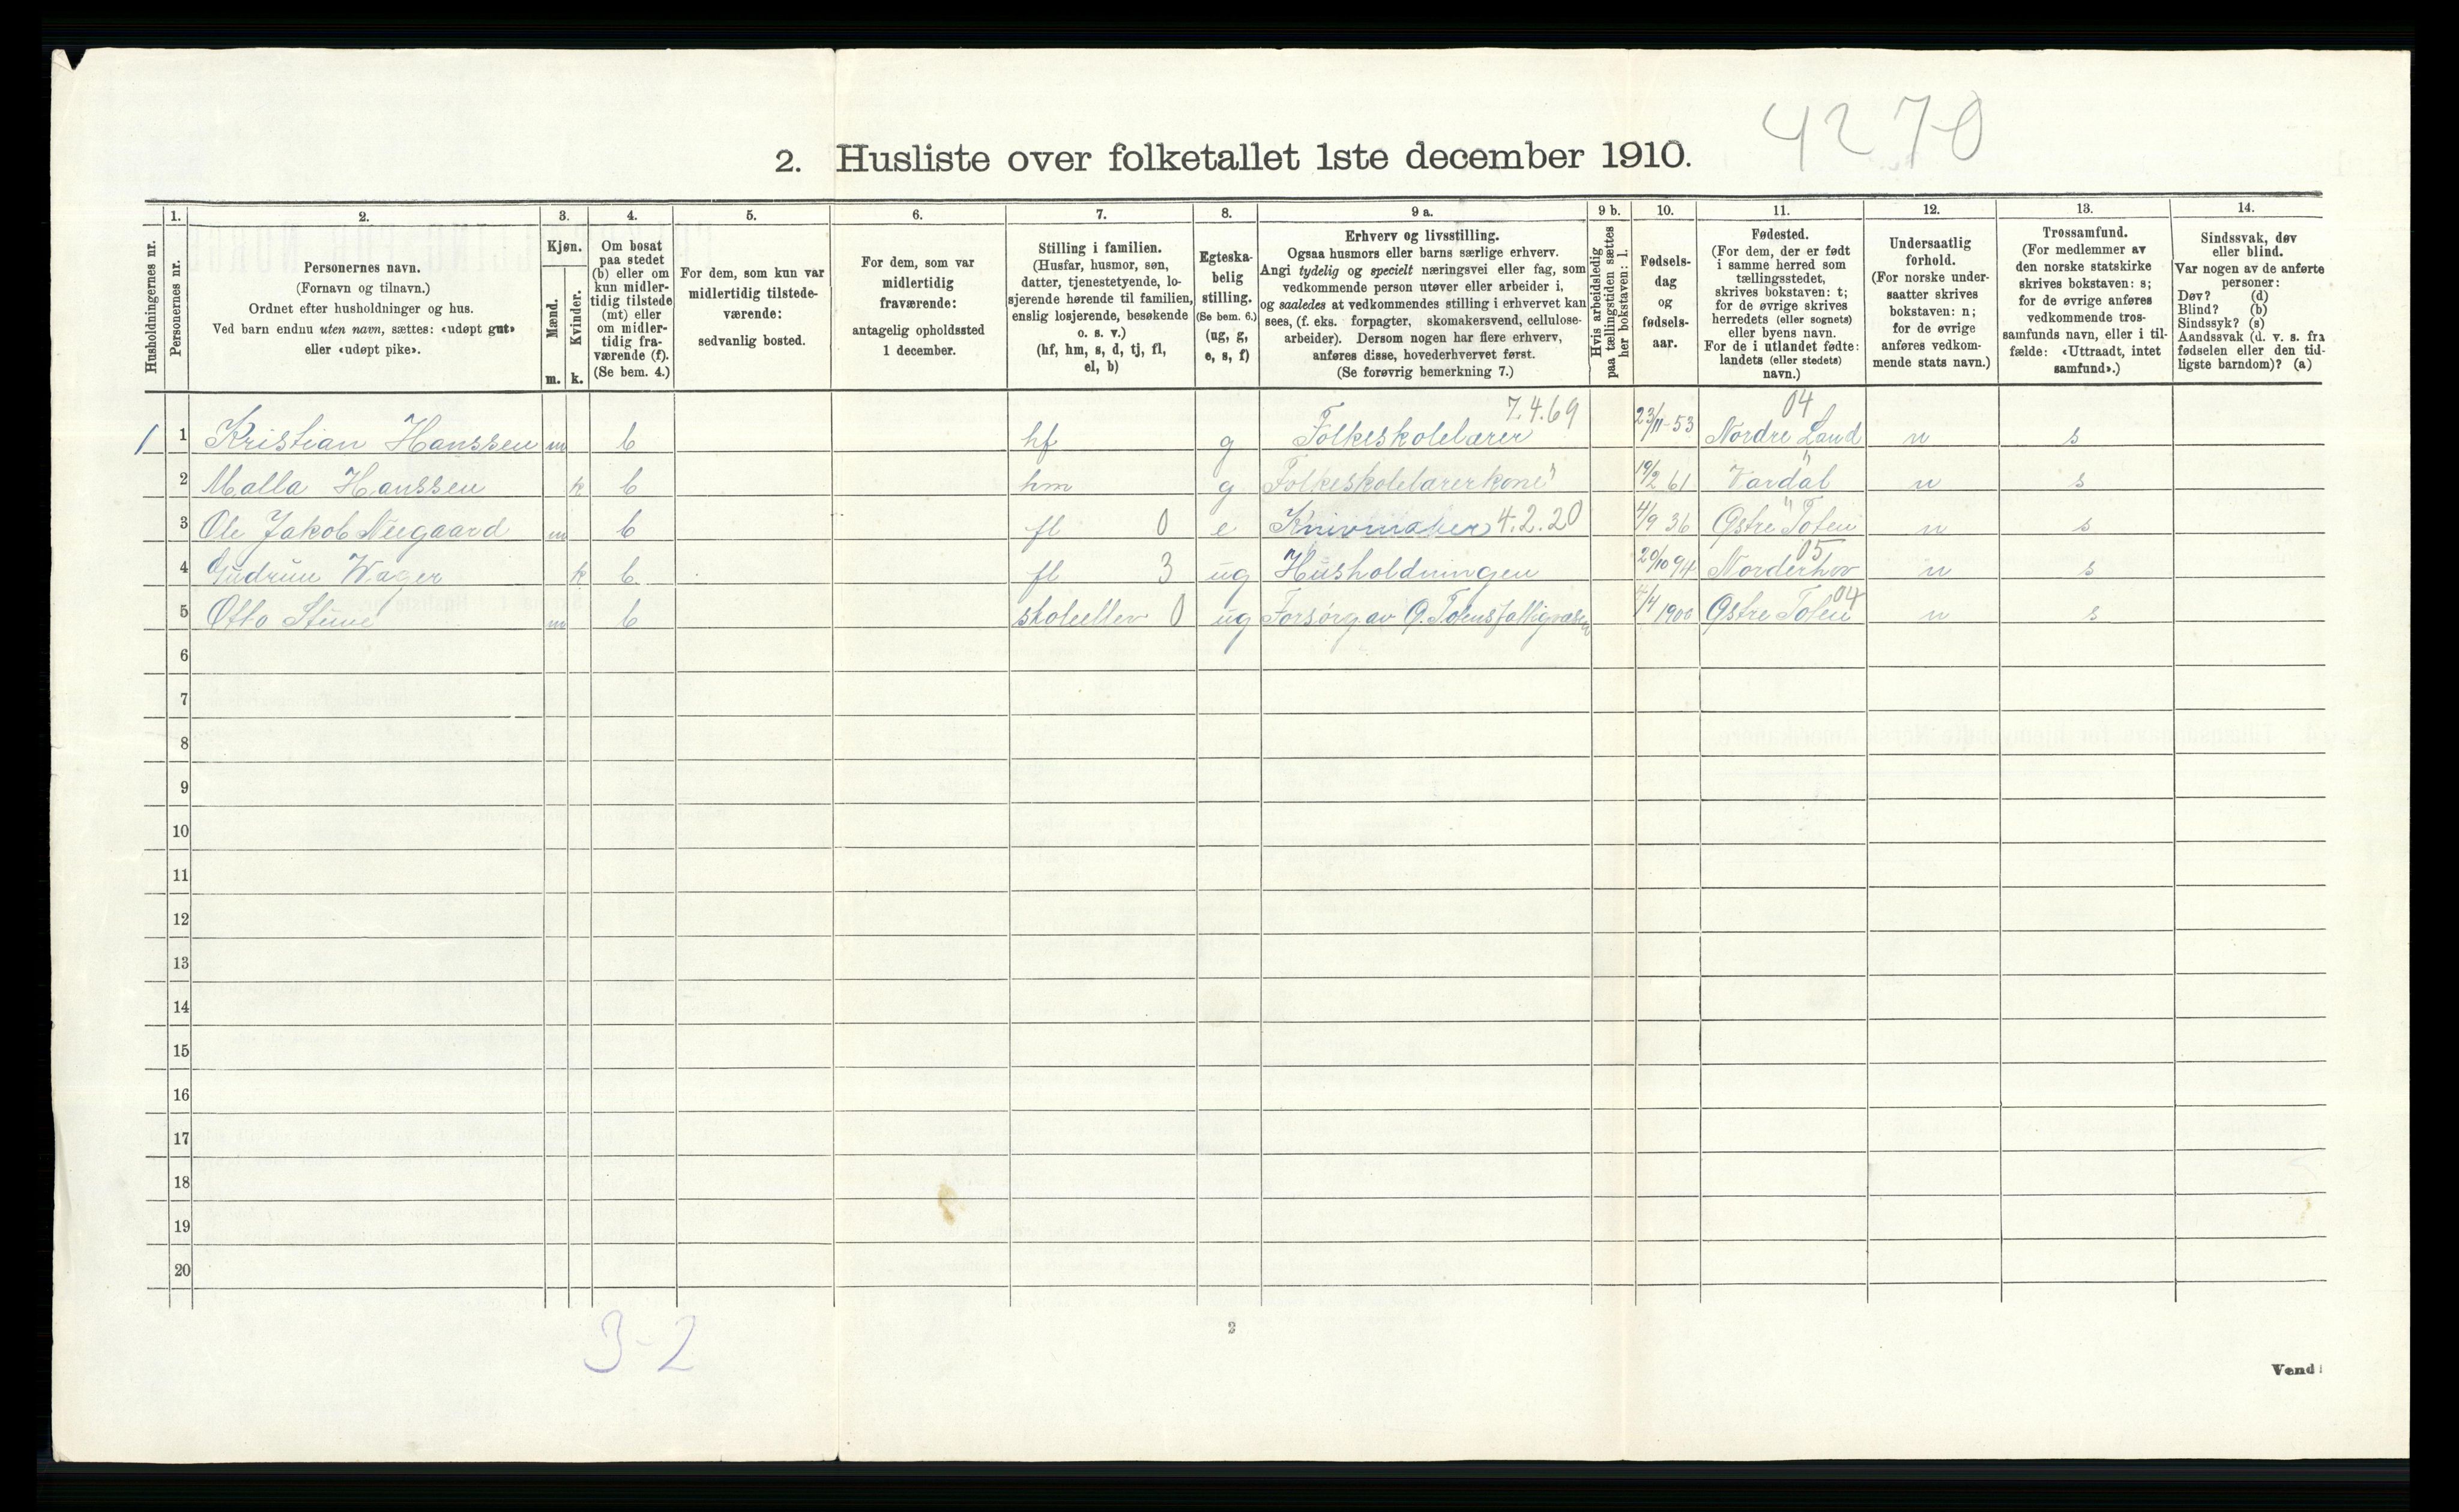 4270
2. Husliste over folketallet 1ste december 1910.
Husholdningernes nr.
1.
Personernes nr.
2.
Personernes navn.
(Fornavn og tilnavn.)
Ordnet efter husholdninger og hus.
Ved barn endnu uten navn, sættes: «udøpt gut»
eller «udøpt pike».
3.
Kjøn.
Mænd.
Kvinder.
m. k.
4.
Om bosat
paa stedet
(b) eller om
kun midler-
tidig tilstede
(mt) eller
om midler-
tidig fra-
værende (f).
(Se bem. 4.)
5.
For dem, som kun var
midlertidig tilstede-
værende:
sedvanlig bosted.
6.
For dem, som var
midlertidig
fraværende:
antagelig opholdssted
1 december.
7.
Stilling i familien.
(Husfar, husmor, søn,
datter, tjenestetyende, lo-
sjerende hørende til familien,
enslig losjerende, besøkende
o. s. v.)
(hf, hm, s, d, tj, fl,
el, b)
8.
Egteska-
belig
stilling.
(Se bem. 6.)
(ug, g,
e, s, f)
9 a.
Erhverv og livsstilling.
Ogsaa husmors eller barns særlige erhverv.
Angi tydelig og specielt næringsvei eller fag, som
vedkommende person utøver eller arbeider i,
og saaledes at vedkommendes stilling i erhvervet kan
sees, (f. eks. forpagter, skomakersvend, cellulose-
arbeider). Dersom nogen har flere erhverv,
anføres disse, hovederhvervet først.
(Se forøvrig bemerkning 7.)
9 b.
Hvis arbeidsledig
paa tællingstiden sættes
her bokstaven: l.
10.
Fødsels-
dag
og
fødsels-
aar.
11.
Fødested.
(For dem, der er født
i samme herred som
tællingsstedet,
skrives bokstaven: t;
for de øvrige skrives
herredets (eller sognets)
eller byens navn.
For de i utlandet fødte:
landets (eller stedets)
navn.)
12.
Undersaatlig
forhold.
(For norske under-
saatter skrives
bokstaven: n;
for de øvrige
anføres vedkom-
mende stats navn.)
13.
Trossamfund.
(For medlemmer av
den norske statskirke
skrives bokstaven: s;
for de øvrige anføres
vedkommende tros-
samfunds navn, eller i til-
fælde: «Uttraadt, intet
samfund».)
14.
Sindssvak, døv
eller blind.
Var nogen av de anførte
personer:
Døv? (d)
Blind? (b)
Sindssyk? (s)
Aandssvak (d. v. s. fra
fødselen eller den tid-
ligste barndom)? (a)
7.4.69 04
1 1 Kristian Hanssen m b hf g Folkeskolelærer 23/11-53 Nordre Land n s
2 Malla Hanssen k b hm g Folkeskolelærerkone " 19/2 61 " Vardal n s
3 Ole Jakob Neegaard m b fl 0 e Knivmaker 4.2.20 4/9 36 " Østre Toten n s
4 Gudrun Wager k b fl 3 ug Husholdningen 20/10 94 05 Norderhov n s
5 Otto Stuve m b skoleelev 0 ug Forsørg av Ø. Totens fattigvæsen 4/4 1900 Østre Toten 04 n s
6
7
8
9
10
11
12
13
14
15
16
17
18
19
20
3-2
2
Vend!